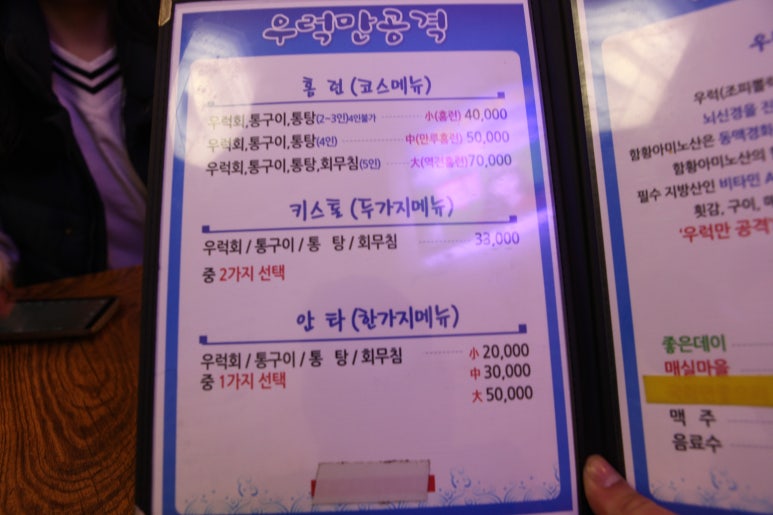 우럭만공격
홈 런 (코스메뉴)
우럭회,통구이,통탕(2~3인)4인불가 ········ 小(홈런) 40,000
우럭회,통구이,통탕(4인) 中(만루홈런) 50,000
우럭회,통구이,통탕,회무침(5인) ········ 大(역전홈런)70,000
키스톤 (두가지메뉴)
우럭회 / 통구이 / 통 탕 / 회무침 ········ 33,000
중 2가지 선택
안 타 (한가지메뉴)
우럭회 / 통구이 / 통 탕 / 회무침 ········ 小 20,000
중 1가지 선택 中 30,000
大 50,000
우럭(조피볼
뇌신경을 진
함황아미노산은 동맥경화
함황아미노산의
필수 지방산인 비타민 A
횟감, 구이,
'우럭만 공격'
좋은데이
매실마을
맥 주
음료수